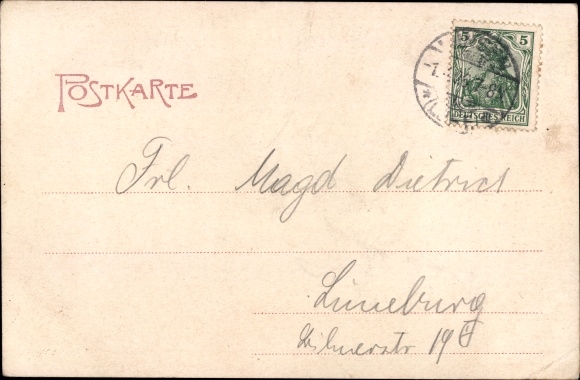 POSTKARTE
5 5
DEUTSCHES REICH
7.
7-8
Frl. Magd Dietrich
Lüneburg
19